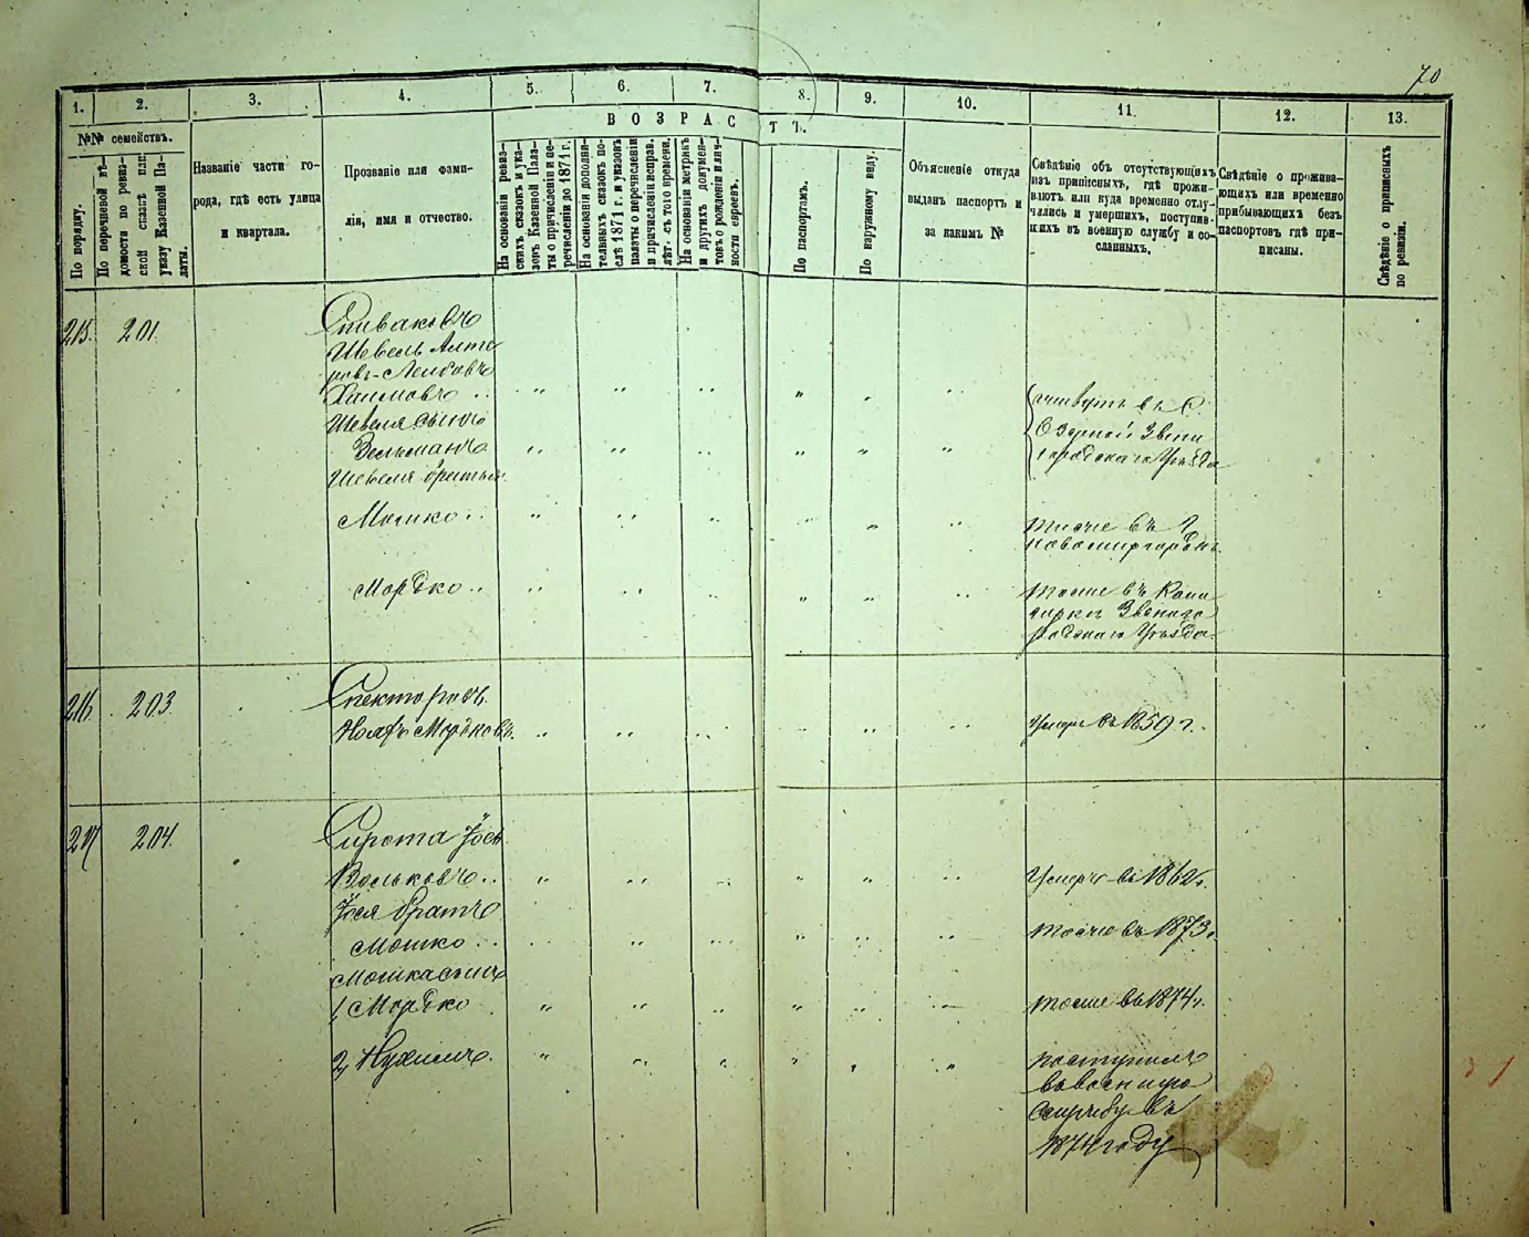 70
1. 2. 3. 4. 5. 6. 7. 8. 9. 10. 11. 12. 13.
№№ семействъ.
По порядку.
По перечневой вѣ-
домости по ревиз-
ской сказкѣ или
указу Казенной Па-
латы.
Названіе части го-
рода, гдѣ есть улица
и квартала.
Прозваніе или фами-
лія, имя и отчество.
ВОЗРАСТЪ.
На основаніи ревиз-
скихъ сказокъ и ука-
зовъ Казенной Пала-
ты о причисленіи и пе-
речисленіи до 1871 г.
На основаніи дополни-
тельныхъ сказокъ по-
слѣ 1871 г. и указовъ
палаты о перечисленіи
и причисленіи исправ.
лѣт. съ того времени.
На основаніи метрикъ
и другихъ докумен-
товъ о рожденіи и лич-
ности евреевъ.
По паспортамъ.
По наружному виду.
Объясненіе откуда
выданъ паспортъ и
за какимъ №
Свѣдѣніе объ отсутствующихъ
изъ приписныхъ, гдѣ прожи-
ваютъ или куда временно отлу-
чались и умершихъ, поступив-
шихъ въ военную службу и со-
сланныхъ.
Свѣдѣніе о прожива-
ющихъ или временно
прибывающихъ безъ
паспортовъ гдѣ при-
писаны.
Свѣдѣніе о приписныхъ
по ревизіи.
215. 201. Спиваковъ
Шевель Алте
ровъ-Лейбовъ
Хаимовъ
Шевеля сынъ
Зельманъ
Шевеля братья
Мошко
Мордко
живутъ въ С.
Озерной Звени
городскаго Уѣзда
тоже въ Г.
Новомиргородѣ
тоже въ
Звениго
родскаго Уѣзда
216. 203. Спекторовъ
Мордковъ.
Умеръ въ 1859 г.
217 204. Сирота Іось
Вольковъ Умеръ въ 1862 г.
Іося братъ
Мошко тоже въ 1873 г.
Мошка сынъ
1, Мордко тоже въ 1874 г.
2, Нухимъ поступилъ
въ военную
службу въ
1874 году